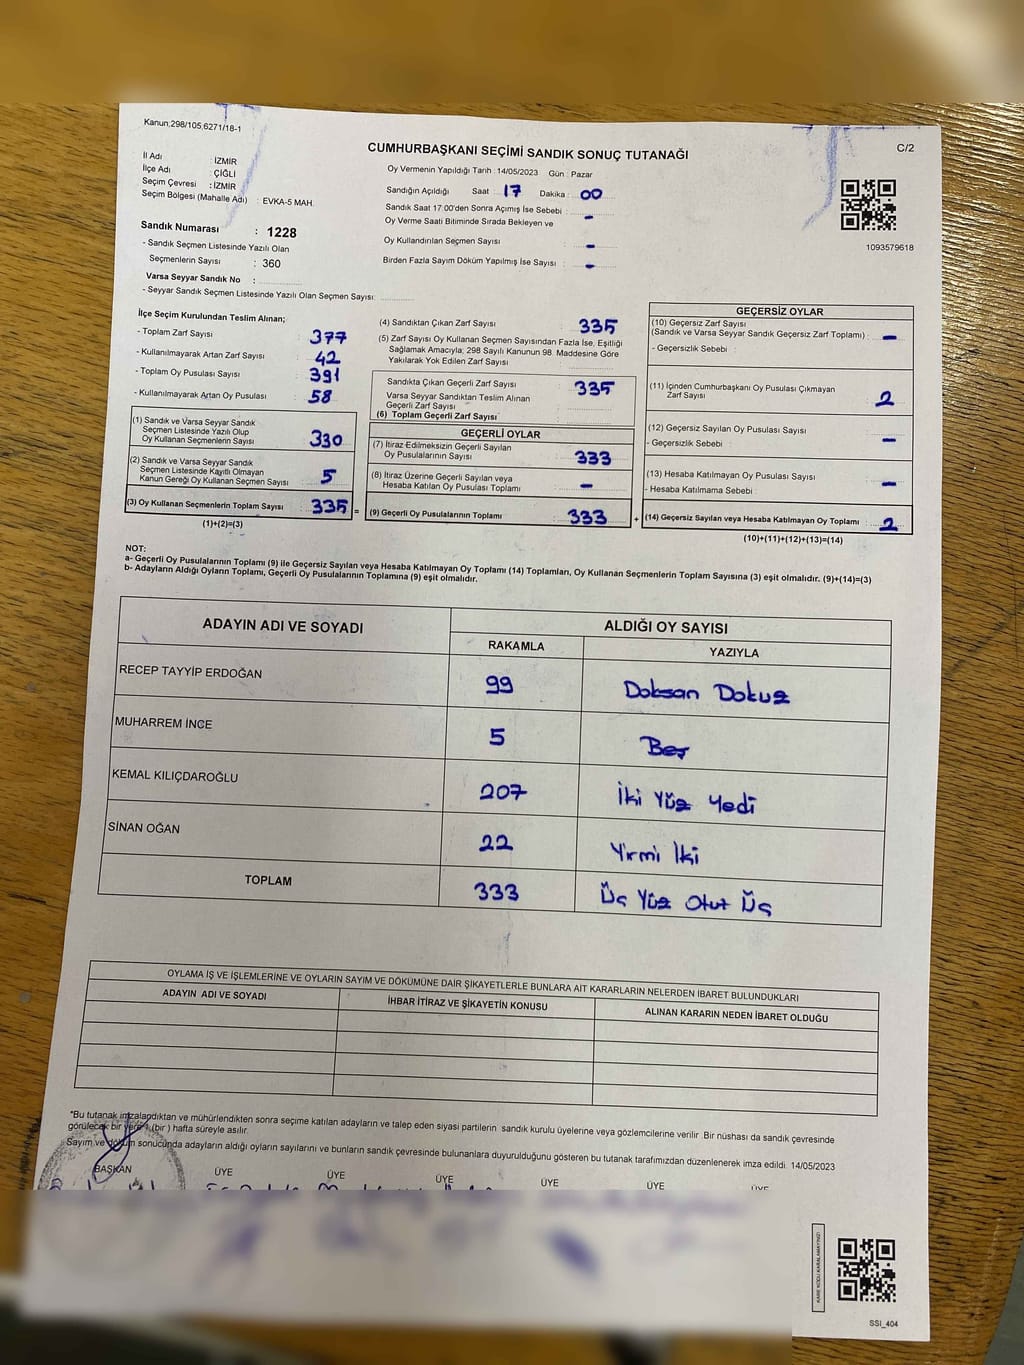 Kanun;298/105,6271/18-1
CUMHURBAŞKANI SEÇİMİ SANDIK SONUÇ TUTANAĞI
C/2
İl Adı : İZMİR
İlçe Adı : ÇİĞLİ
Seçim Çevresi : İZMİR
Seçim Bölgesi (Mahalle Adı) : EVKA-5 MAH.
Sandık Numarası : 1228
- Sandık Seçmen Listesinde Yazılı Olan
Seçmenlerin Sayısı : 360
Varsa Seyyar Sandık No :
- Seyyar Sandık Seçmen Listesinde Yazılı Olan Seçmen Sayısı:
Oy Vermenin Yapıldığı Tarih : 14/05/2023 Gün : Pazar
Sandığın Açıldığı Saat : 17 Dakika : 00
Sandık Saat 17:00'den Sonra Açımış İse Sebebi : -
Oy Verme Saati Bitiminde Sırada Bekleyen ve
Oy Kullandırılan Seçmen Sayısı : -
Birden Fazla Sayım Döküm Yapılmış İse Sayısı : -
1093579618
İlçe Seçim Kurulundan Teslim Alınan;
- Toplam Zarf Sayısı : 377
- Kullanılmayarak Artan Zarf Sayısı : 42
- Toplam Oy Pusulası Sayısı : 391
- Kullanılmayarak Artan Oy Pusulası : 58
(1) Sandık ve Varsa Seyyar Sandık
Seçmen Listesinde Yazılı Olup
Oy Kullanan Seçmenlerin Sayısı : 330
(2) Sandık ve Varsa Seyyar Sandık
Seçmen Listesinde Kayıtlı Olmayan
Kanun Gereği Oy Kullanan Seçmen Sayısı : 5
(3) Oy Kullanan Seçmenlerin Toplam Sayısı : 335 =
(1)+(2)=(3)
(4) Sandıktan Çıkan Zarf Sayısı : 335
(5) Zarf Sayısı Oy Kullanan Seçmen Sayısından Fazla İse, Eşitliği
Sağlamak Amacıyla; 298 Sayılı Kanunun 98. Maddesine Göre
Yakılarak Yok Edilen Zarf Sayısı :
Sandıkta Çıkan Geçerli Zarf Sayısı : 335
Varsa Seyyar Sandıktan Teslim Alınan
Geçerli Zarf Sayısı :
(6) Toplam Geçerli Zarf Sayısı :
GEÇERLİ OYLAR
(7) İtiraz Edilmeksizin Geçerli Sayılan
Oy Pusulalarının Sayısı : 333
(8) İtiraz Üzerine Geçerli Sayılan veya
Hesaba Katılan Oy Pusulası Toplamı : -
(9) Geçerli Oy Pusulalarının Toplamı : 333 +
GEÇERSİZ OYLAR
(10) Geçersiz Zarf Sayısı
(Sandık ve Varsa Seyyar Sandık Geçersiz Zarf Toplamı) : -
- Geçersizlik Sebebi :
(11) İçinden Cumhurbaşkanı Oy Pusulası Çıkmayan
Zarf Sayısı : 2
(12) Geçersiz Sayılan Oy Pusulası Sayısı : -
- Geçersizlik Sebebi :
(13) Hesaba Katılmayan Oy Pusulası Sayısı : -
- Hesaba Katılmama Sebebi :
(14) Geçersiz Sayılan veya Hesaba Katılmayan Oy Toplamı : 2
(10)+(11)+(12)+(13)=(14)
NOT:
a- Geçerli Oy Pusulalarının Toplamı (9) ile Geçersiz Sayılan veya Hesaba Katılmayan Oy Toplamı (14) Toplamları, Oy Kullanan Seçmenlerin Toplam Sayısına (3) eşit olmalıdır. (9)+(14)=(3)
b- Adayların Aldığı Oyların Toplamı, Geçerli Oy Pusulalarının Toplamına (9) eşit olmalıdır.
ADAYIN ADI VE SOYADI ALDIĞI OY SAYISI
RAKAMLA YAZIYLA
RECEP TAYYİP ERDOĞAN 99 Doksan Dokuz
MUHARREM İNCE 5 Beş
KEMAL KILIÇDAROĞLU 207 İki Yüz Yedi
SİNAN OĞAN 22 Yirmi İki
TOPLAM 333 Üç Yüz Otut Üç
OYLAMA İŞ VE İŞLEMLERİNE VE OYLARIN SAYIM VE DÖKÜMÜNE DAİR ŞİKAYETLERLE BUNLARA AİT KARARLARIN NELERDEN İBARET BULUNDUKLARI
ADAYIN ADI VE SOYADI İHBAR İTİRAZ VE ŞİKAYETİN KONUSU ALINAN KARARIN NEDEN İBARET OLDUĞU
*Bu tutanak imzalandıktan ve mühürlendikten sonra seçime katılan adayların ve talep eden siyasi partilerin sandık kurulu üyelerine veya gözlemcilerine verilir .Bir nüshası da sandık çevresinde
görülecek bir yerde 1 (bir ) hafta süreyle asılır.
Sayım ve döküm sonucunda adayların aldığı oyların sayılarını ve bunların sandık çevresinde bulunanlara duyurulduğunu gösteren bu tutanak tarafımızdan düzenlenerek imza edildi. 14/05/2023
BAŞKAN ÜYE ÜYE ÜYE ÜYE ÜYE ÜYE
KARE KODU KARALAMAYINIZ!
SSI_404